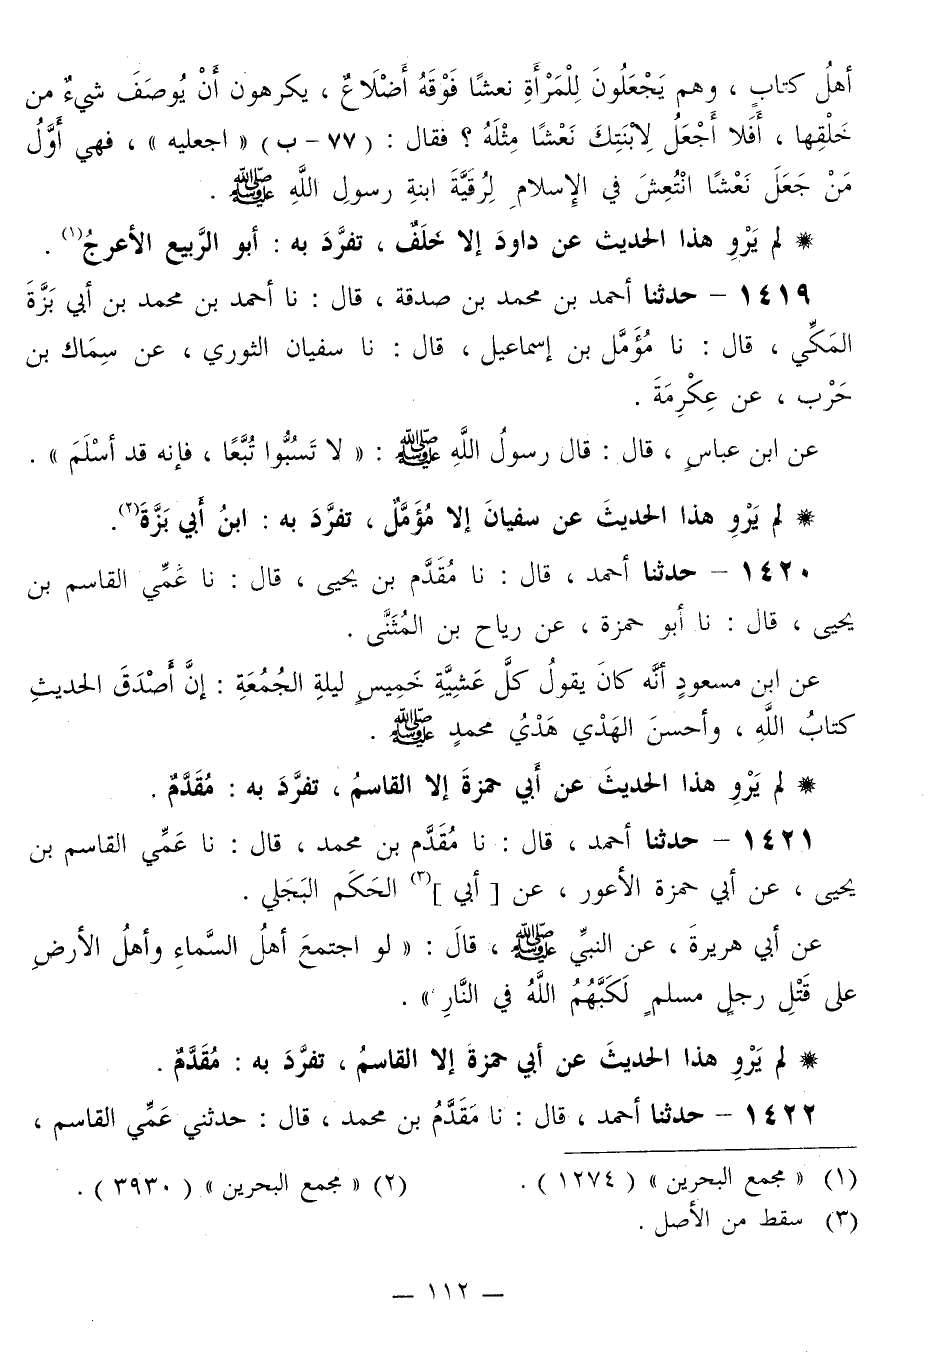 أهلُ كتابٍ ، وهم يَجْعَلُونَ لِلْمَرْأَةِ نعشًا فَوْقَهُ أَضْلَاعٌ ، يكرهون أَنْ يُوصَفَ شيءٌ من
خَلْقِها ، أَفَلا أَجْعَلُ لِابْنَتِكَ نَعْشًا مِثْلَهُ ؟ فقال : ( ٧٧ - ب ) « اجعليه » ، فهي أَوَّلُ
مَنْ جَعَلَ نَعْشًا انْتُعِشَ في الإسلامِ لِرُقَيَّةَ ابنةِ رسولِ اللَّهِ ﷺ .
* لم يَرْوِ هذا الحديث عن داودَ إلا خَلَفٌ ، تفرَّدَ به : أبو الرَّبيع الأعرجُ(١) .
١٤١٩ – حدثنا أحمد بن محمد بن صدقة ، قال : نا أحمد بن محمد بن أبي بَزَّةَ
المَكِّي ، قال : نا مُؤَمَّل بن إسماعيل ، قال : نا سفيان الثوري ، عن سِمَاك بن
حَرْب ، عن عِكْرِمَةَ .
عن ابن عباسٍ ، قال : قال رسولُ اللَّهِ ﷺ : « لا تَسُبُّوا تُبَّعًا ، فإنه قد أسْلَمَ » .
* لم يَرْوِ هذا الحديثَ عن سفيانَ إلا مُؤَمَّلٌ ، تفرَّدَ به : ابنُ أَبي بَزَّةَ(٢).
١٤٢٠ – حدثنا أحمد ، قال : نا مُقَدَّم بن يحيى ، قال : نا عَمِّي القاسم بن
يحيى ، قال : نا أبو حمزة ، عن رياح بن المُثَنَّى .
عن ابن مسعودٍ أنَّه كانَ يقولُ كلَّ عَشِيَّةِ خَمِيسٍ ليلةِ الجُمُعَةِ : إنَّ أَصْدَقَ الحديثِ
كتابُ اللَّهِ ، وأحسنَ الهَدْي هَدْيُ محمدٍ ﷺ .
* لم يَرْوِ هذا الحديثَ عن أَبي حمزةَ إلا القاسمُ ، تفرَّدَ به : مُقَدَّمٌ .
١٤٢١ – حدثنا أحمد ، قال : نا مُقَدَّم بن محمد ، قال : نا عَمِّي القاسم بن
يحيى ، عن أبي حمزة الأعور ، عن [ أبي ](٣) الحَكَم البَجَلي .
عن أبي هريرةَ ، عن النبيِّ ﷺ ، قالَ : « لو اجتمعَ أهلُ السَّماءِ وأهلُ الأرضِ
على قَتْلِ رجلٍ مسلمٍ لَكَبَّهُمُ اللَّهُ في النَّارِ » .
* لم يَرْوِ هذا الحديثَ عن أبي حمزةَ إلا القاسمُ ، تفرَّدَ به : مُقَدَّمٌ.
١٤٢٢ – حدثنا أحمد ، قال : نا مَقَدَّمُ بن محمد ، قال : حدثني عَمِّي القاسم ،
(١) « مجمع البحرين » ( ١٢٧٤ ) . (٢) « مجمع البحرين » ( ٣٩٣٠ ) .
(٣) سقط من الأصل .
— ١١٢ —